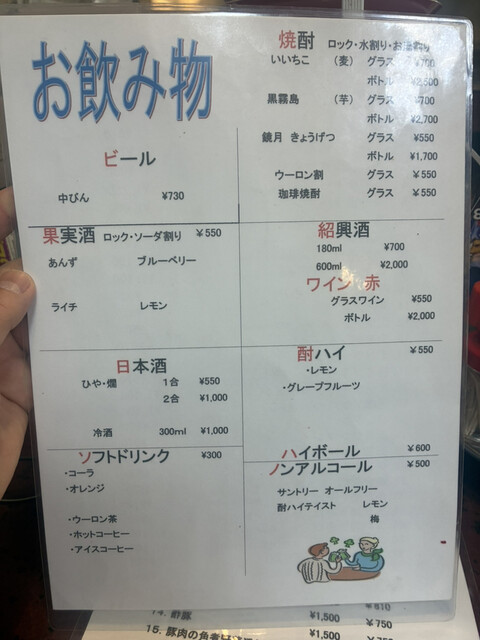 お飲み物
ビール
中びん ¥730
果実酒 ロック・ソーダ割り ¥550
あんず ブルーベリー
ライチ レモン
日本酒
ひや・燗 1合 ¥550
2合 ¥1,000
冷酒 300ml ¥1,000
ソフトドリンク ¥300
・コーラ
・オレンジ
・ウーロン茶
・ホットコーヒー
・アイスコーヒー
焼酎 ロック・水割り・お湯割り
いいちこ (麦) グラス ¥700
ボトル
黒霧島 (芋) グラス ¥700
ボトル ¥2,700
鏡月 きょうげつ グラス ¥550
ボトル ¥1,700
ウーロン割 グラス ¥550
珈琲焼酎 グラス ¥550
紹興酒
180ml ¥700
600ml ¥2,000
ワイン 赤
グラスワイン ¥550
ボトル ¥2,000
酎ハイ ¥550
・レモン
・グレープフルーツ
ハイボール ¥600
ノンアルコール ¥500
サントリー オールフリー
酎ハイテイスト レモン
梅
¥810
14. 酢豚 ¥1,500 ¥750
15. 豚肉の角煮 ¥1,500 ¥750